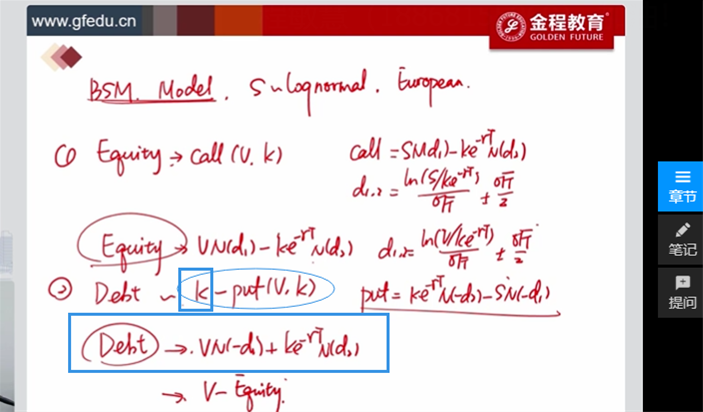 www.gfedu.cn
金程教育
GOLDEN FUTURE
BSM. Model. S~lognormal. European.
① Equity → call (V, k) call = SN(d₁) - ke^{-rT}N(d₂)
d₁,₂ = ln(S/ke^{-rT})/σ√T ± σ√T/2
Equity → VN(d₁) - ke^{-rT}N(d₂) d₁,₂ = ln(V/ke^{-rT})/σ√T ± σ√T/2
② Debt ~ k - put (V, k) put = ke^{-rT}N(-d₂) - SN(-d₁)
Debt → VN(-d₁) + ke^{-rT}N(d₂)
→ V - Equity.
章节
笔记
提问